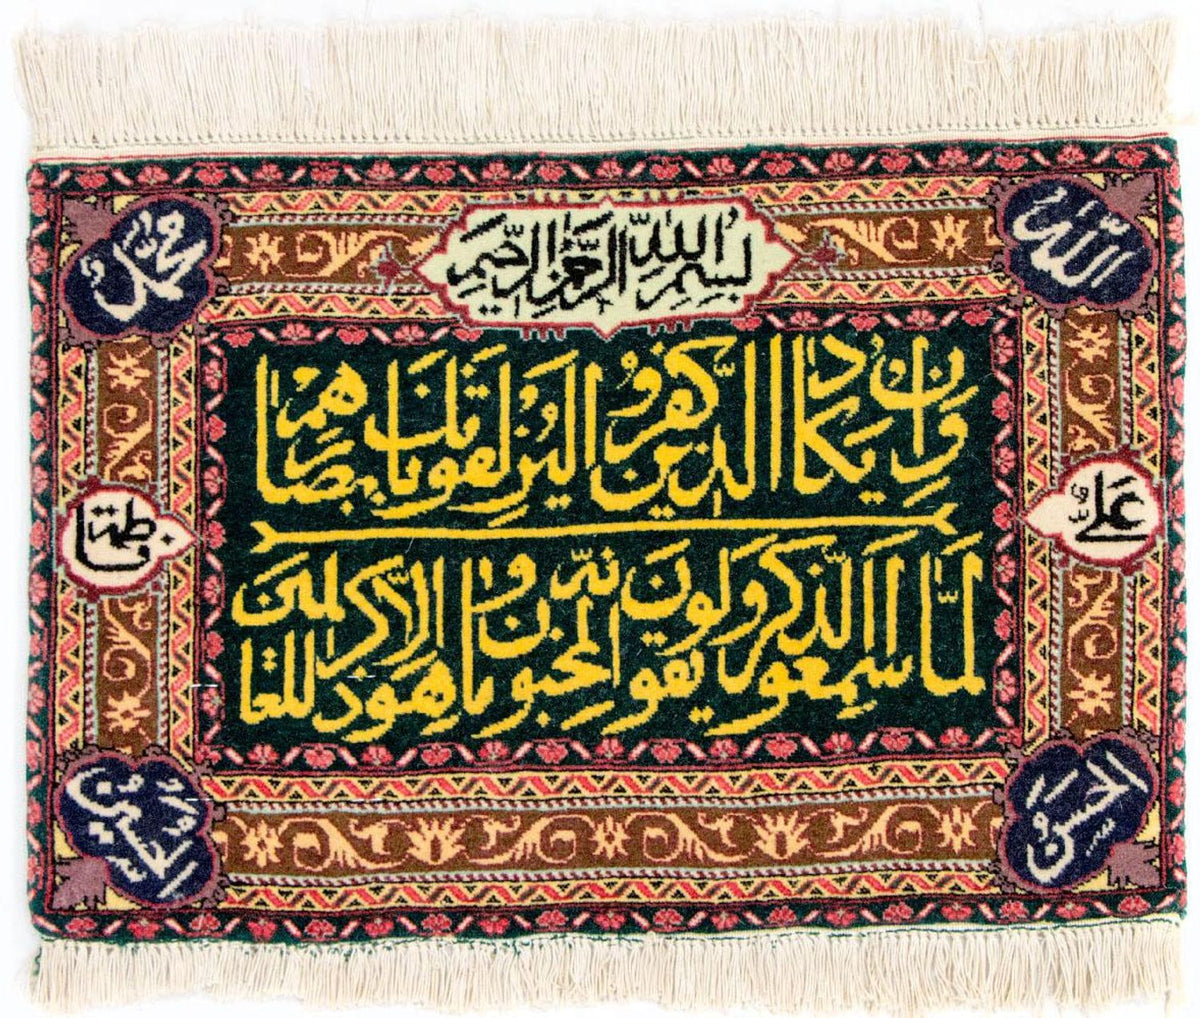 الله
بسم الله الرحمن الرحيم
محمد
وإن يكاد الذين كفروا ليزلقونك بابصارهم
علي
فاطمة
لما سمعوا الذكر ويقولون انه لمجنون وما هو الا ذكر للعالمين
الحسن
الحسين